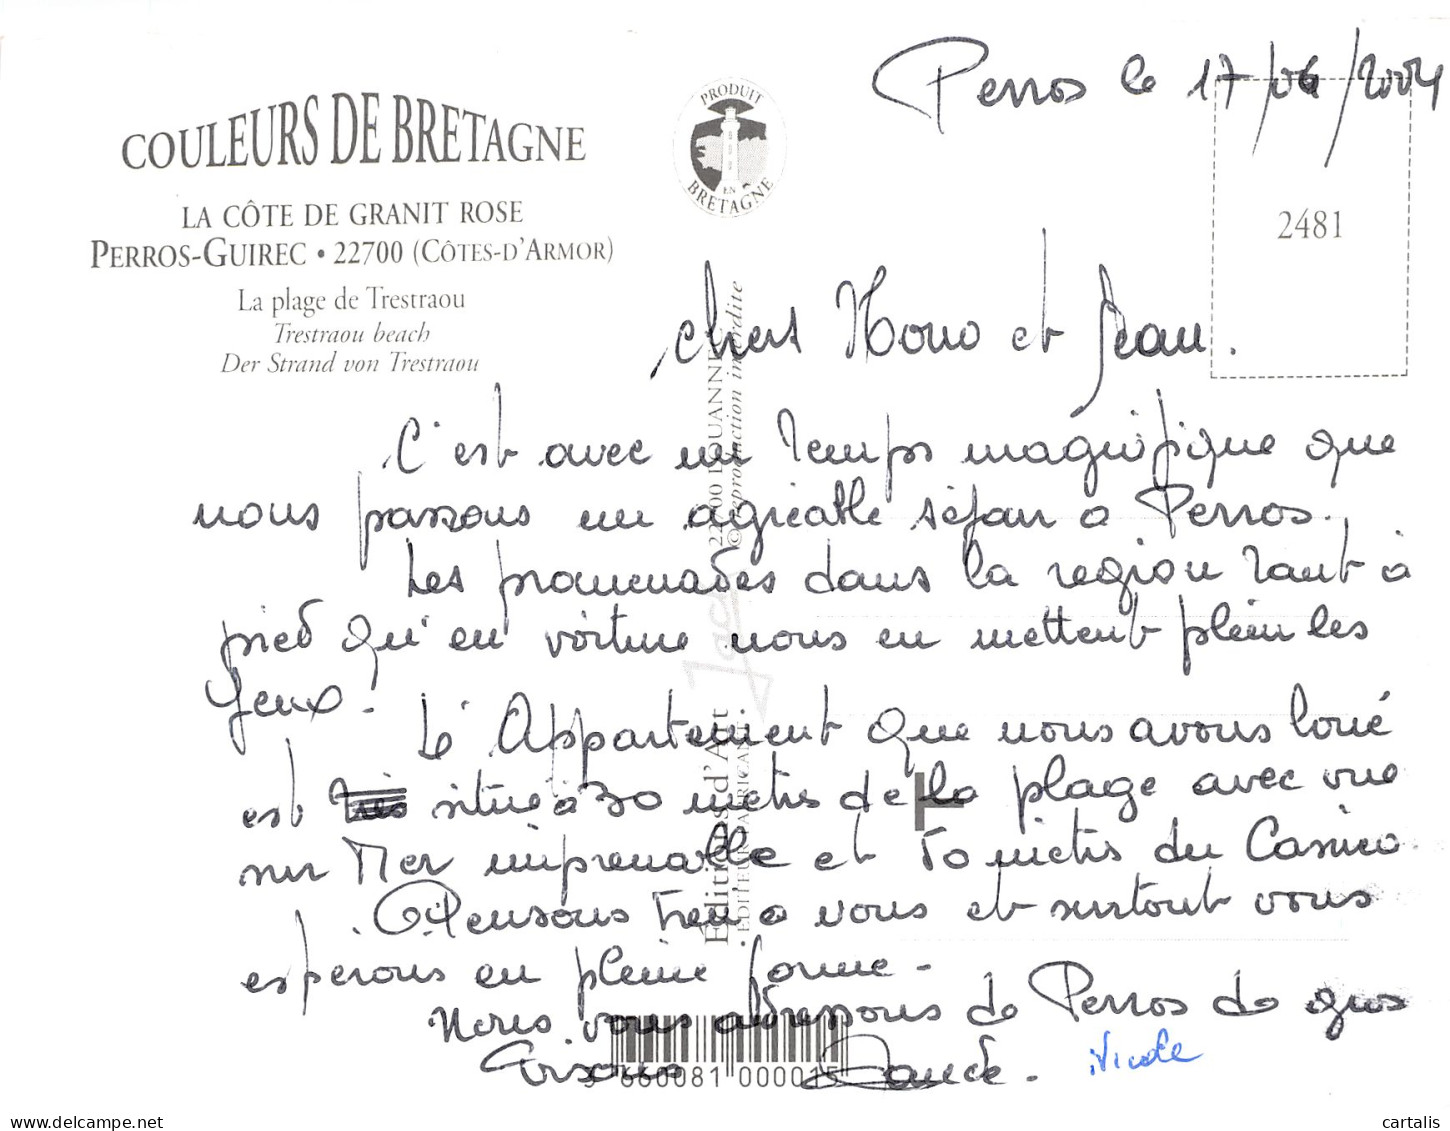 Perros le 17/06/2004
COULEURS DE BRETAGNE
LA CÔTE DE GRANIT ROSE
PERROS-GUIREC • 22700 (CÔTES-D'ARMOR)
La plage de Trestraou
Trestraou beach
Der Strand von Trestraou
PRODUIT
EN
BRETAGNE
2481
chers Nono et Jean.
C'est avec un temps magnifique que
nous passons un agréable séjour a Perros.
Les promenades dans la region tant à
pied qu'en voiture nous en mettent plein les
yeux.
L'Appartement que nous avons loué
est très situé à 30 mètres de la plage avec vue
sur Mer imprenable et 50 mètres du Casino.
Pensons bien a vous et surtout vous
esperons en pleine forme-
Nous vous adressons de Perros de gros
Bisous
Nicole
Éditions d'Art
Jack
ÉDITEUR FABRICANT
22700 LOUANNEC
© Reproduction interdite
3 660081 000015
cartalis
delcampe.net